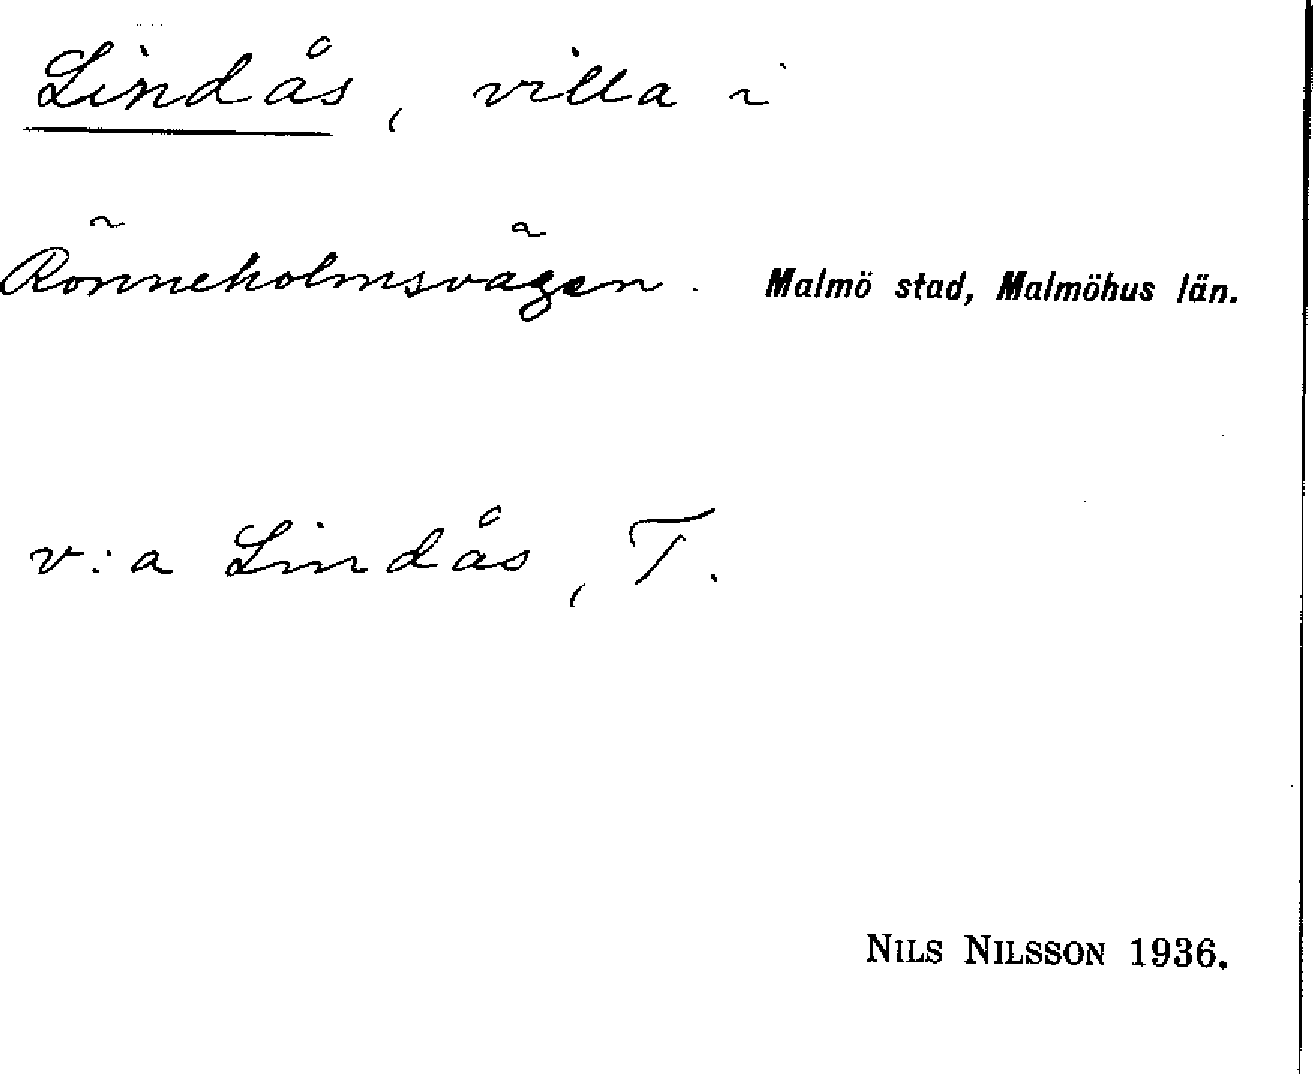 Lindås, villa i
Rönneholmsvägen. Malmö stad, Malmöhus län.
v:a Lindås, T.
NILS NILSSON 1936.